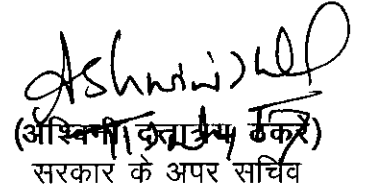 Ashwini
(अश्विनी दत्तात्रय ठकरे)
सरकार के अपर सचिव